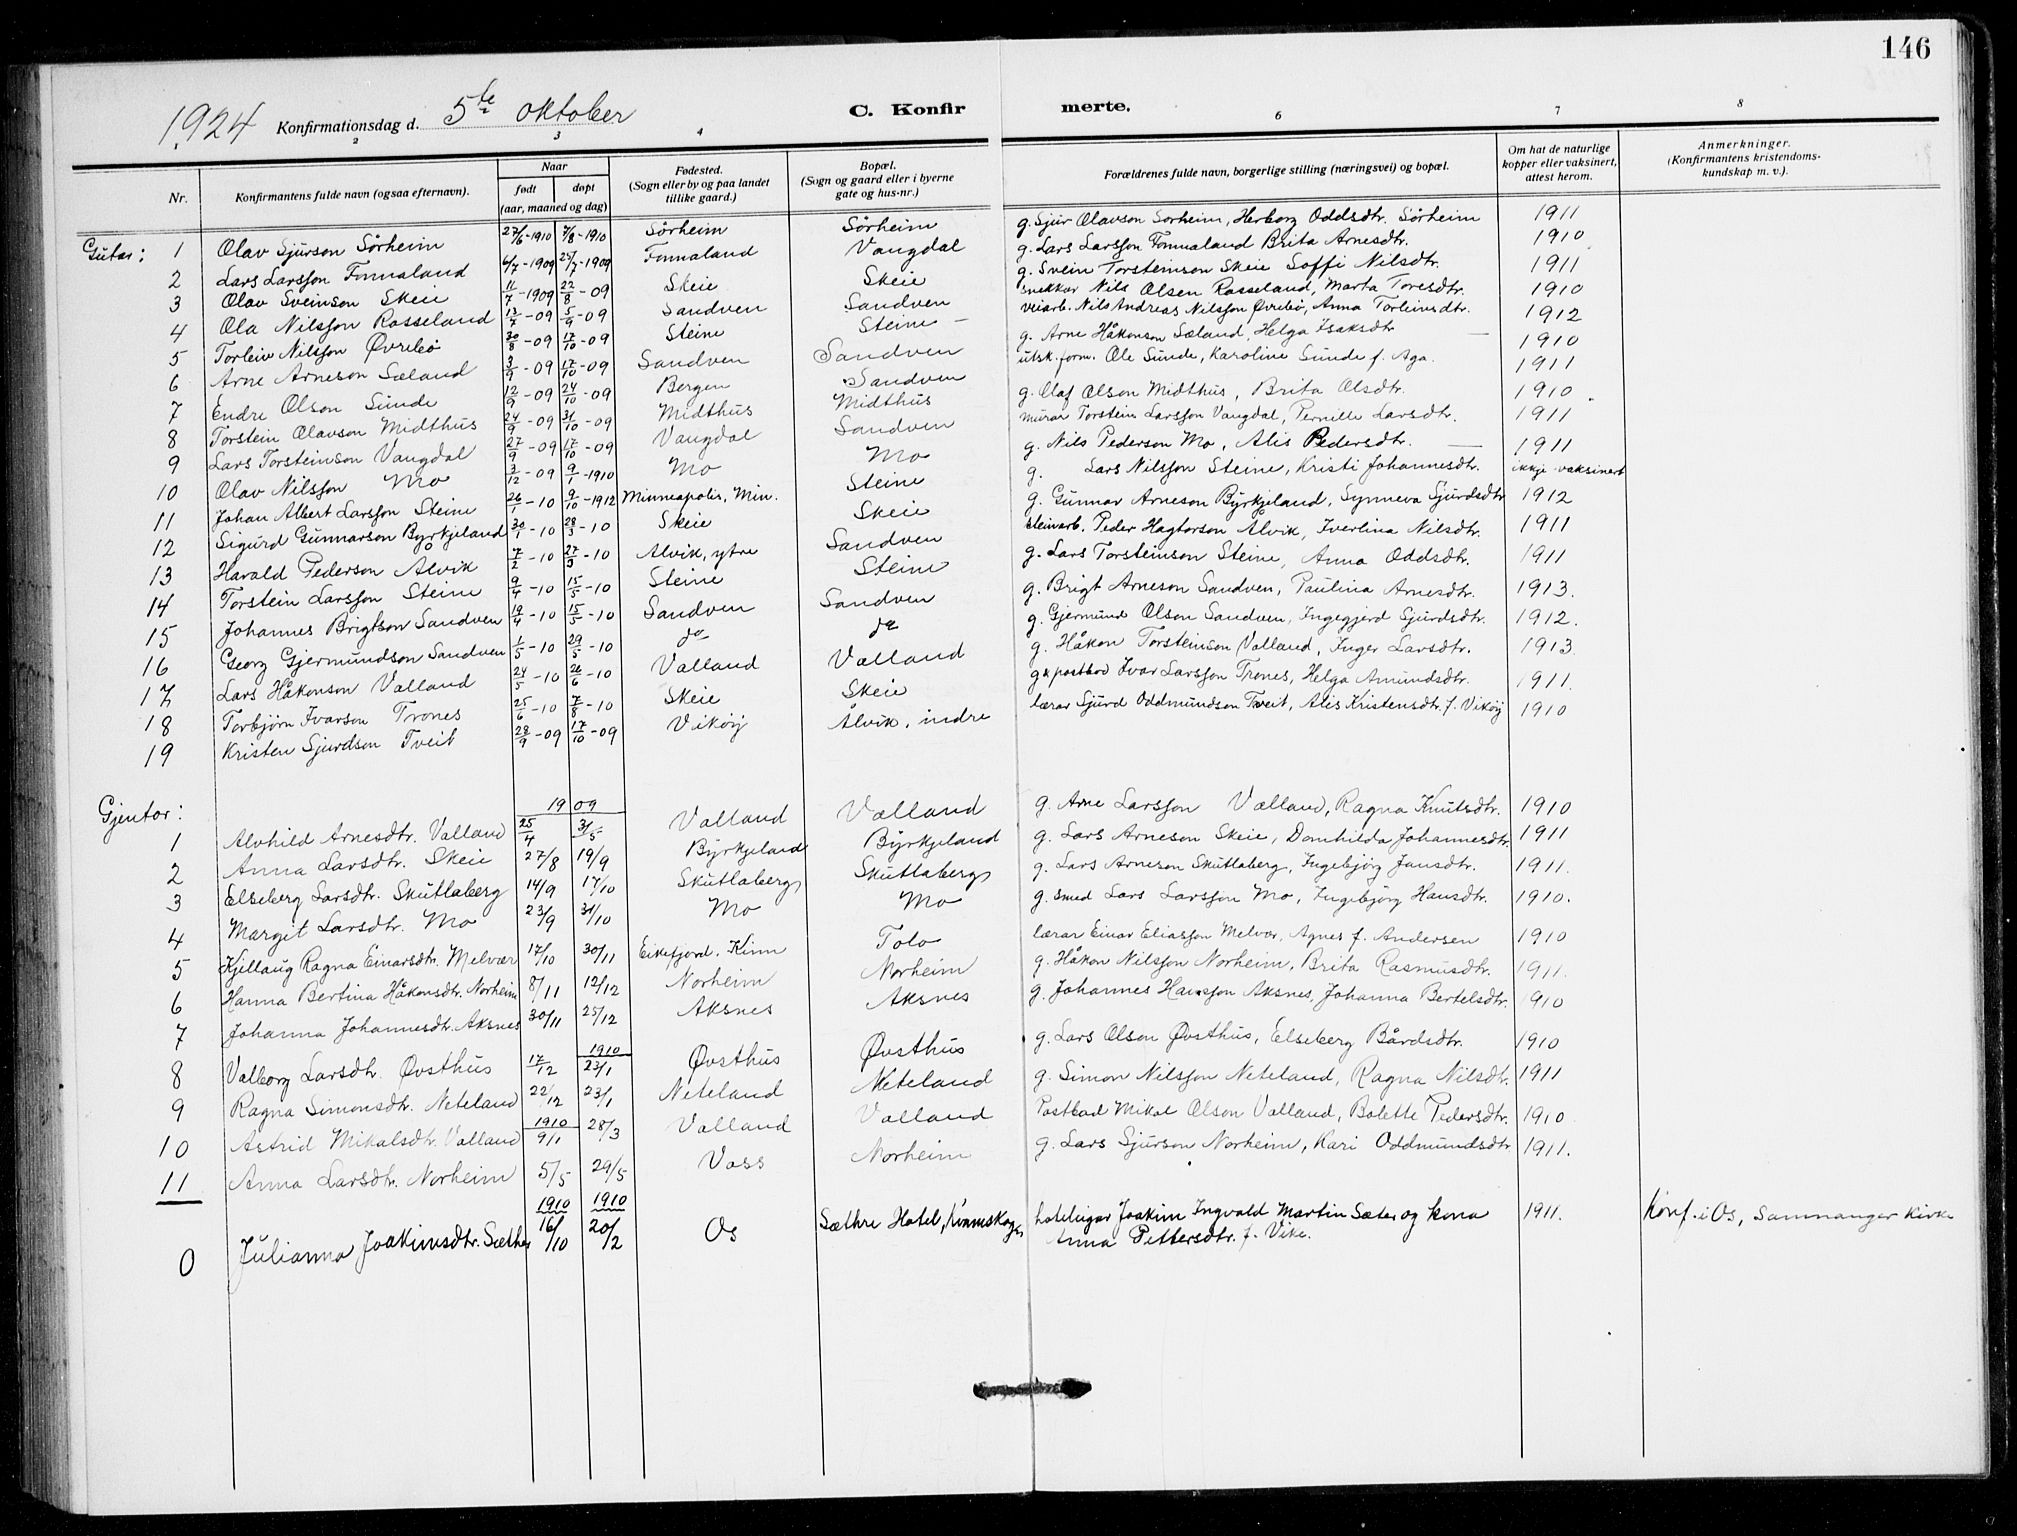 146
1924 Konfirmationsdag d. 5te oktober C. Konfirmerte.
2 3 4 6 7 8
Nr. Konfirmantens fulde navn (ogsaa efternavn). Naar født døpt (aar, maaned og dag) Fødested. (Sogn eller by og paa landet tillike gaard.) Bopæl. (Sogn og gaard eller i byerne gate og hus-nr.) Forældrenes fulde navn, borgerlige stilling (næringsvei) og bopæl. Om hat de naturlige kopper eller vaksinert, attest herom. Anmerkninger. (Konfirmantens kristendoms-kundskap m. v.).
Gutar: 1 Olav Sjurson Sørheim 27/6-1910 7/8-1910 Sørheim Sørheim g. Sjur Olavson Sørheim, Herborg Oddsdtr. Sørheim 1911
2 Lars Larsson Fonnaland 6/7-1909 25/7-1909 Fonnaland Vangdal g. Lars Larsson Fonnaland Brita Arnesdtr. 1910
3 Olav Sveinson Skeie 11/7-1909 22/8-09 Skeie Skeie g. Svein Torsteinson Skeie Soffi Nilsdtr. 1911
4 Ola Nilsson Rosseland 13/7-09 5/9-09 Sandven Sandven snekkar Nils Olsen Rosseland, Marta Toresdtr. 1910
5 Torleiv Nilsson Øvrebø 30/8-09 17/10-09 Steine Steine veiarb. Nils Andreas Nilsson Øvrebø, Anna Torleivsdtr. 1912
6 Arne Arneson Sæland 3/9-09 17/10-09 Sandven Sandven g. Arne Håkonson Sæland, Helga Isaksdtr 1910
7 Endre Olson Sunde 12/9-09 24/10-09 Bergen Sandven utsk.form. Ole Sunde, Karoline Sunde f. Aga. 1911
8 Torstein Olavson Midthus 24/9-09 31/10-09 Midthus Midthus g. Olaf Olson Midthus, Brita Olsdtr. 1910
9 Lars Torsteinson Vangdal 27/9-09 17/10-09 Vangdal Sandven murar Torstein Larsson Vangdal, Pernille Larsdtr. 1911
10 Olav Nilsson Mo 3/12-09 9/1-1910 Mo Mo g. Nils Pederson Mo, Alis Pedersdtr. 1911
11 Johan Albert Larsson Steine 26/1-10 9/10-1912 Minneapolis, Min. Steine g. Lars Nilsson Steine, Kristi Johannesdtr. ikkje vaksinert
12 Sigurd Gunnarson Byrkjeland 30/1-10 28/3-10 Skeie Skeie g. Gunnar Arneson Byrkjeland, Synneva Sjurdsdtr 1912
13 Harald Pederson Ålvik 7/2-10 27/3-10 Alvik, ytre Sandven steinarb. Peder Hagtorson Ålvik, Iverlina Nilsdtr. 1911
14 Torstein Larsson Steine 9/4-10 15/5-10 Steine Steine g. Lars Torsteinson Steine, Anna Oddsdtr. 1911
15 Johannes Brigtson Sandven 19/4-10 15/5-10 Sandven Sandven g. Brigt Arneson Sandven, Paulina Arnesdtr. 1913.
16 Georg Gjermundson Sandven 1/5-10 29/5-10 do do g. Gjermund Olson Sandven, Ingegjerd Sjurdsdtr. 1912.
17 Lars Håkonson Valland 24/5-10 26/6-10 Valland Valland g. Håkon Torsteinson Valland, Inger Larsdtr. 1913
18 Torbjørn Ivarson Trones 25/6-10 7/8-10 Skeie Skeie g & postbod Ivar Larsson Trones, Helga Amundsdtr. 1911.
19 Kristen Sjurdson Tveit 28/9-09 17/10-09 Vikøy Ålvik, indre lærar Sjurd Oddmundson Tveit, Alis Kristensdtr. f. Vikøy 1910
Gjentor: 1909
1 Alvhild Arnesdtr. Valland 25/4 31/5 Valland Valland g. Arne Larsson Valland, Ragna Knutsdtr. 1910
2 Anna Larsdtr. Skeie 27/8 19/9 Byrkjeland Byrkjeland g. Lars Arneson Skeie, Domhilda Johannesdtr. 1911
3 Elseberg Larsdtr. Skutlaberg 14/9 17/10 Skutlaberg Skutlaberg g. Lars Arneson Skutlaberg, Ingebjørg Jansdtr. 1911.
4 Margit Larsdtr. Mo 23/9 31/10 Mo Mo g. smed Lars Larsson Mo, Ingebjørg Hansdtr. 1910.
5 Kjellaug Ragna Einarsdtr. Melvær 17/10 30/11 Eikefjord, Kinn Tolo lærar Einar Eliasson Melvær, Agnes f. Andersen 1910
6 Hanna Bertina Håkonsdtr. Norheim 8/11 12/12 Norheim Norheim g. Håkon Nilsson Norheim, Brita Rasmusdtr. 1911.
7 Johanna Johannesdtr. Aksnes 30/11 25/12 Aksnes Aksnes g. Johannes Hansson Aksnes, Johanna Bertelsdtr. 1910
8 Valborg Larsdtr. Øvsthus 17/12 1910 23/1 Øvsthus Øvsthus g. Lars Olson Øvsthus, Elseberg Bårdsdtr. 1910
9 Ragna Simonsdtr. Neteland 22/12 23/1 Neteland Neteland g. Simon Nilsson Neteland, Ragna Nilsdtr. 1911
10 Astrid Mikalsdtr. Valland 1910 9/1 28/3 Valland Valland Postbod Mikal Olson Valland, Bolette Pedersdtr. 1910
11 Anna Larsdtr. Norheim 5/5 29/5 Voss Norheim g. Lars Sjurson Norheim, Kari Oddmundsdtr 1911.
0 Julianna Joakimsdtr. Sæther 1910 16/10 1910 20/2 Os Sæthre Hotel, hoteleigar Joakim Ingvald Martin Sæter og kona 1911. Konf. i Os, Samnanger kirke
Anna Pettersdtr. f. Vike.